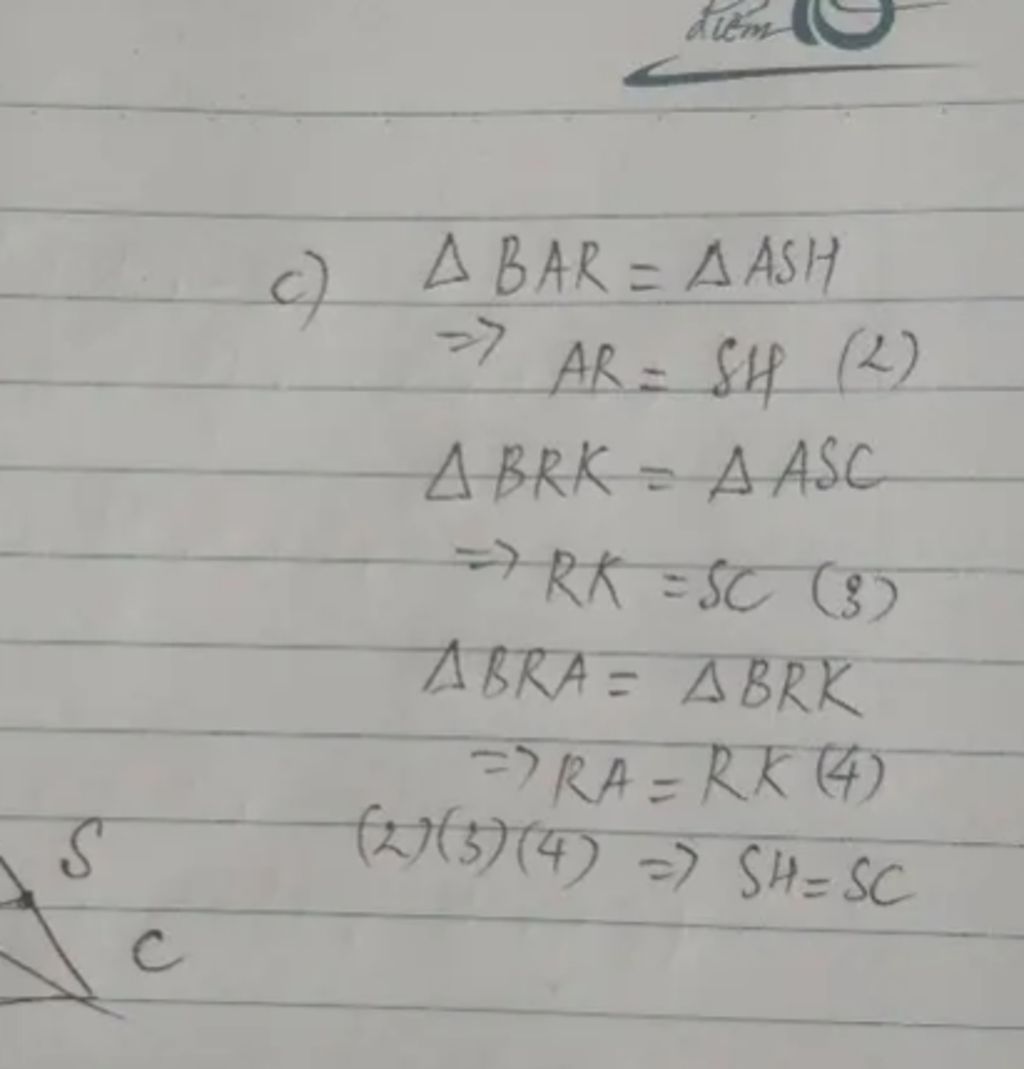 điểm 10
c) Δ BAR = Δ ASH
=> AR = SH (2)
Δ BRK = Δ ASC
=> RK = SC (3)
Δ BRA = Δ BRK
=> RA = RK (4)
(2)(3)(4) => SH = SC
S
C